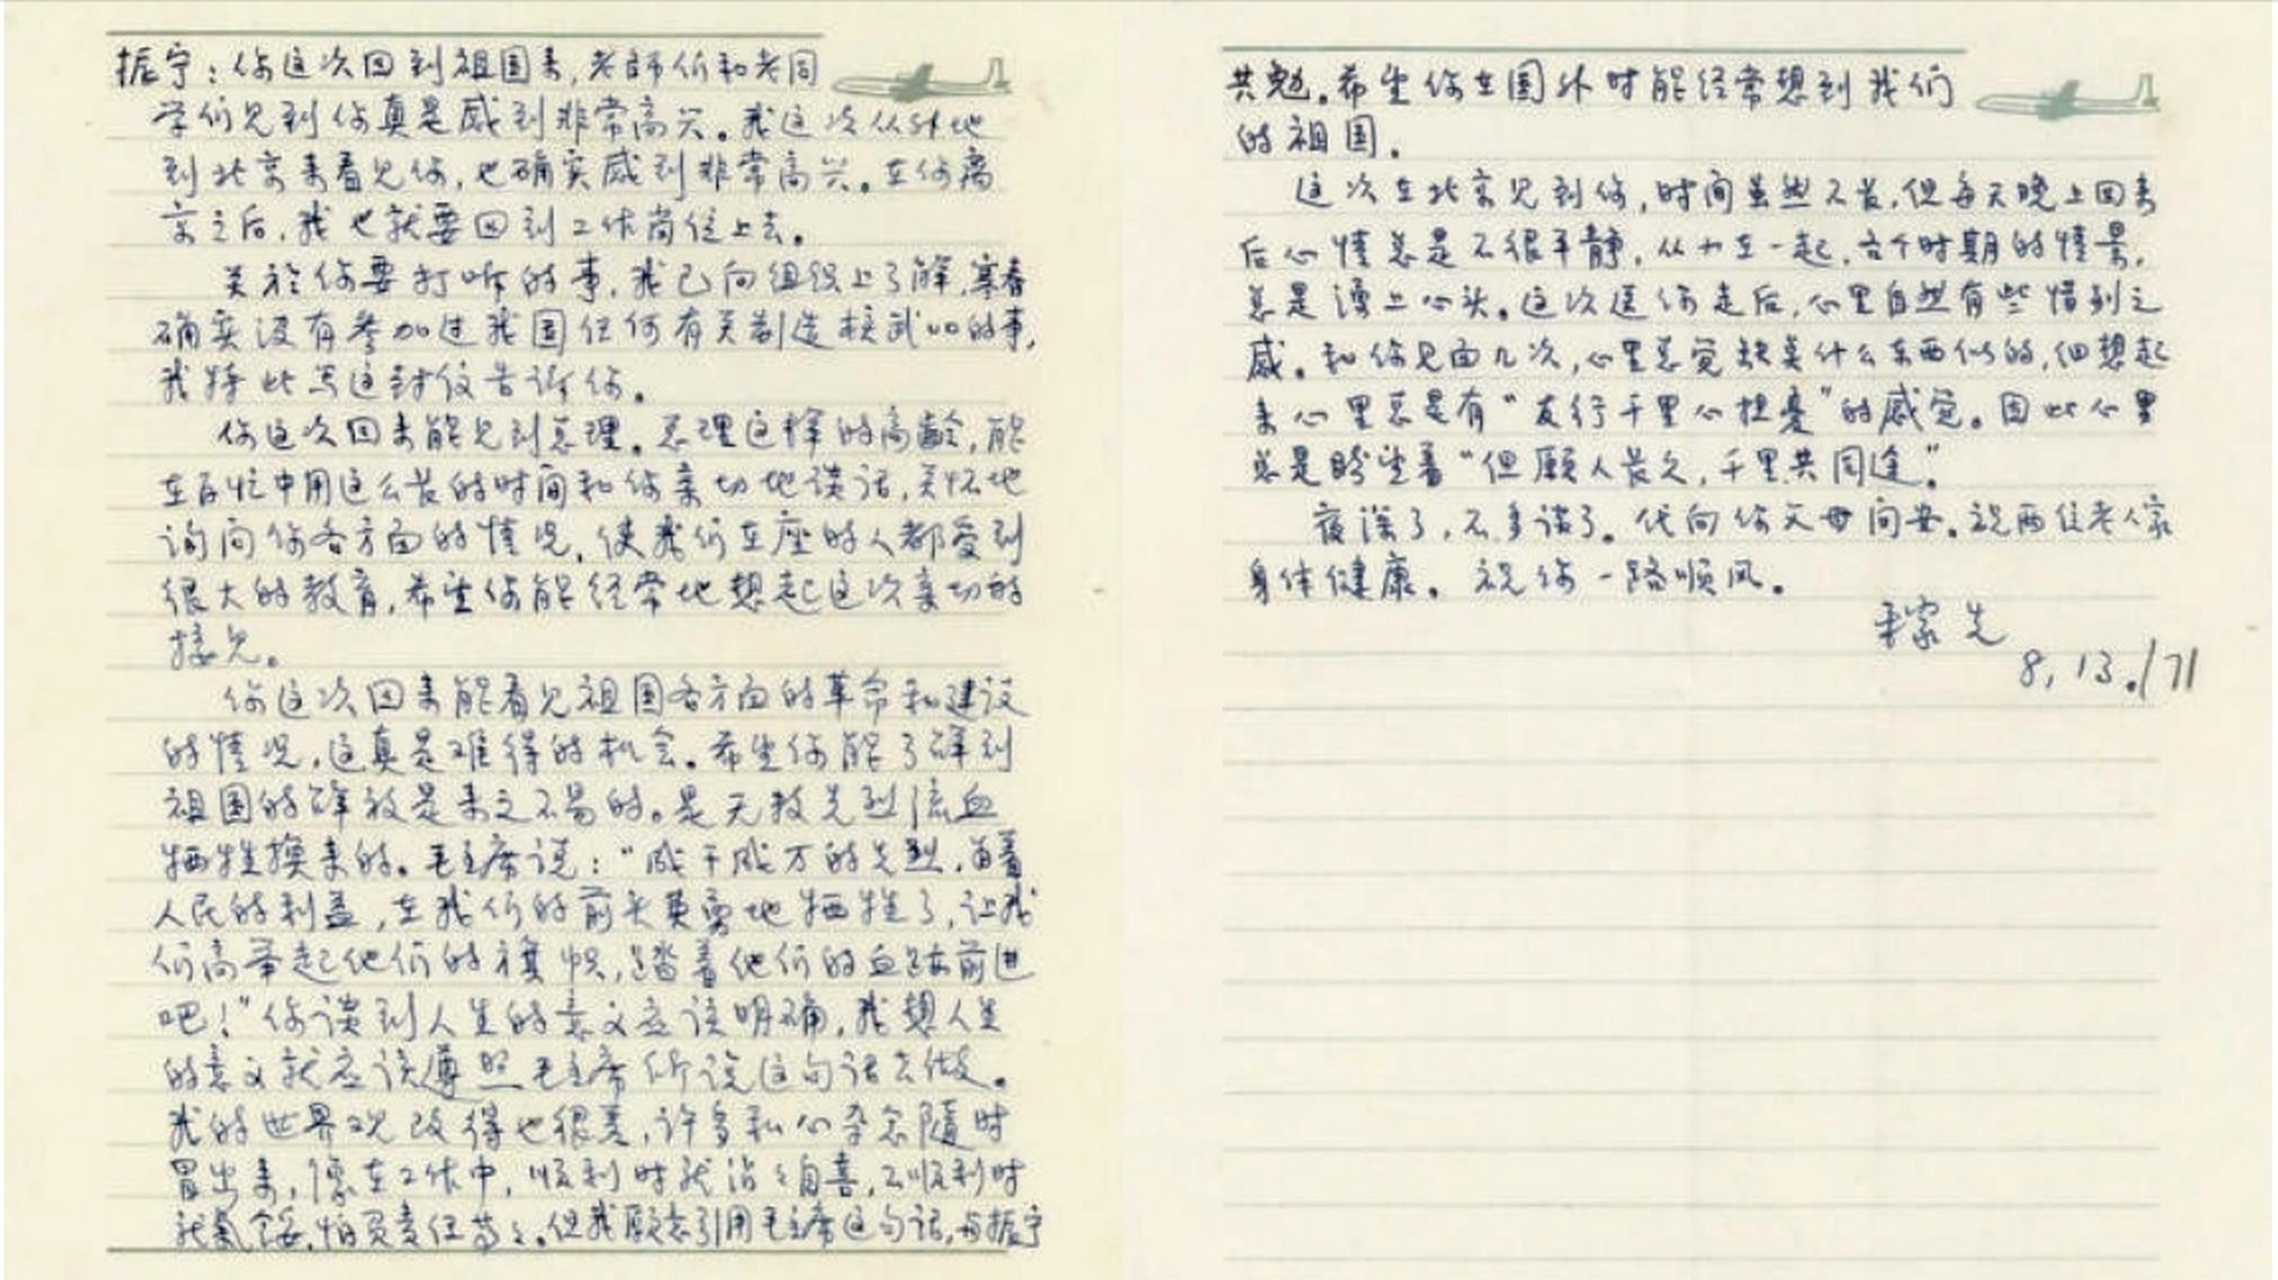 振宁：你这次回到祖国来，老師们和老同
学们见到你真是感到非常高兴。我这次从外地
到北京来看见你，也确实感到非常高兴。在你离
京之后，我也就要回到工作岗位上去。
关於你要打听的事，我已向组织上了解，寒春
确实没有参加过我国任何有关制造核武
的事，
我特此写这封信告诉你。
你这次回来能见到总理。总理这样的高龄，能
在百忙中用这么长的时间和你亲切地谈话，关怀地
询问你各方面的情况，使我们在座的人都受到
很大的教育，希望你能经常地想起这次亲切的
接见。
你这次回来能看见祖国各方面的革命和建设
的情况，这真是难得的机会。希望你能了解到
祖国的解放是来之不易的。是无数先烈流血
牺牲换来的。毛主席说：“成千成万的先烈，为着
人民的利益，在我们的前头英勇地牺牲了，让我
们高举起他们的旗帜，踏着他们的血迹前进
吧！”你谈到人生的意义应该明确，我想人生
的意义就应该遵照毛主席所说这句话去做。
我的世界观改得也很差，许多私心杂念随时
冒出来，像在工作中，顺利时就沾々自喜，不顺利时
就氣馁，怕负责任等々。但我願意引用毛主席这句话，与振宁
共勉。希望你在国外时能经常想到我们
的祖国。
这次在北京见到你，时间虽然不长，但每天晚上回来
后心情总是不很平静，从小在一起，各个时期的情景，
总是湧上心头。这次送你走后，心里自然有些惜别之
感。和你见面几次，心里总觉缺点什么东西似的，细想起
来心里总是有“友行千里心担憂”的感觉。因此心里
总是盼望着“但願人长久，千里共同途”
夜深了，不多谈了。代向你父母问安。祝两位老人家
身体健康。祝你一路顺风。
稼先
8，13./71